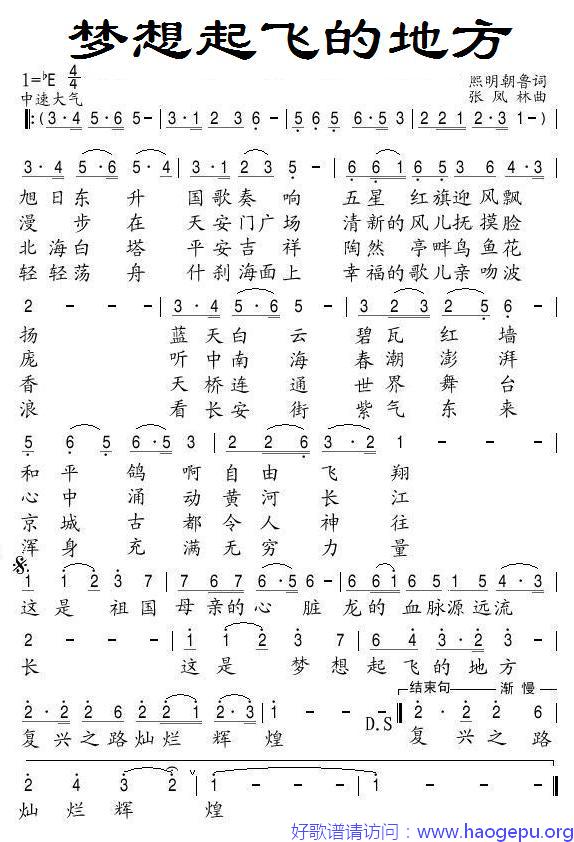 梦想起飞的地方
1=♭E 4/4
熙明朝鲁词
中速大气
张凤林曲
‖:(3·4 5·6 5- | 3·1 2·3 6- | 5 6 5 6 5 6·5 3 | 2 2 1 2·3 1-) |
3·4 5·6 5·4 5- | 3·1 2 2 3 5- | 6 6 1 6 5 3 5 6 4·3 |
旭日东升 国歌奏响 五星红旗迎风飘
漫步在 天安门广场 清新的风儿抚摸脸
北海白塔 平安吉祥 陶然亭畔鸟鱼花
轻轻荡舟 什刹海面上 幸福的歌儿亲吻波
2 - - - | 3·4 3·1 2- | 3 2 3 2 5 6- |
扬 蓝天白云 碧瓦红墙
庞 听中南海 春潮澎湃
香 天桥连通 世界舞台
浪 看长安街 紫气东来
5 6 5 6·5 3 | 2 2 6 3·2 1 - - - |
和平鸽啊自由飞翔
心中涌动黄河长江
京城古都令人神往
浑身充满无穷力量
1 1 2 3 7 | 7 6 7 6·5 | 6 6 1 6 5 1 2 4·3 |
这是祖国母亲的心脏龙的血脉源远流
2 - - - | 1 1 2 3 7 | 6 4 3·2 3 - |
长 这是梦想起飞的地方
结束句 渐慢
2·2 2 6 2 2 1 2·3 | 1 - - - D.S ‖ 2·2 2 6 |
复兴之路灿烂辉煌 复兴之路
2 4 3 2 | 1 - - - | 1 - - - ‖
灿烂辉煌
好歌谱请访问：www.haogepu.org